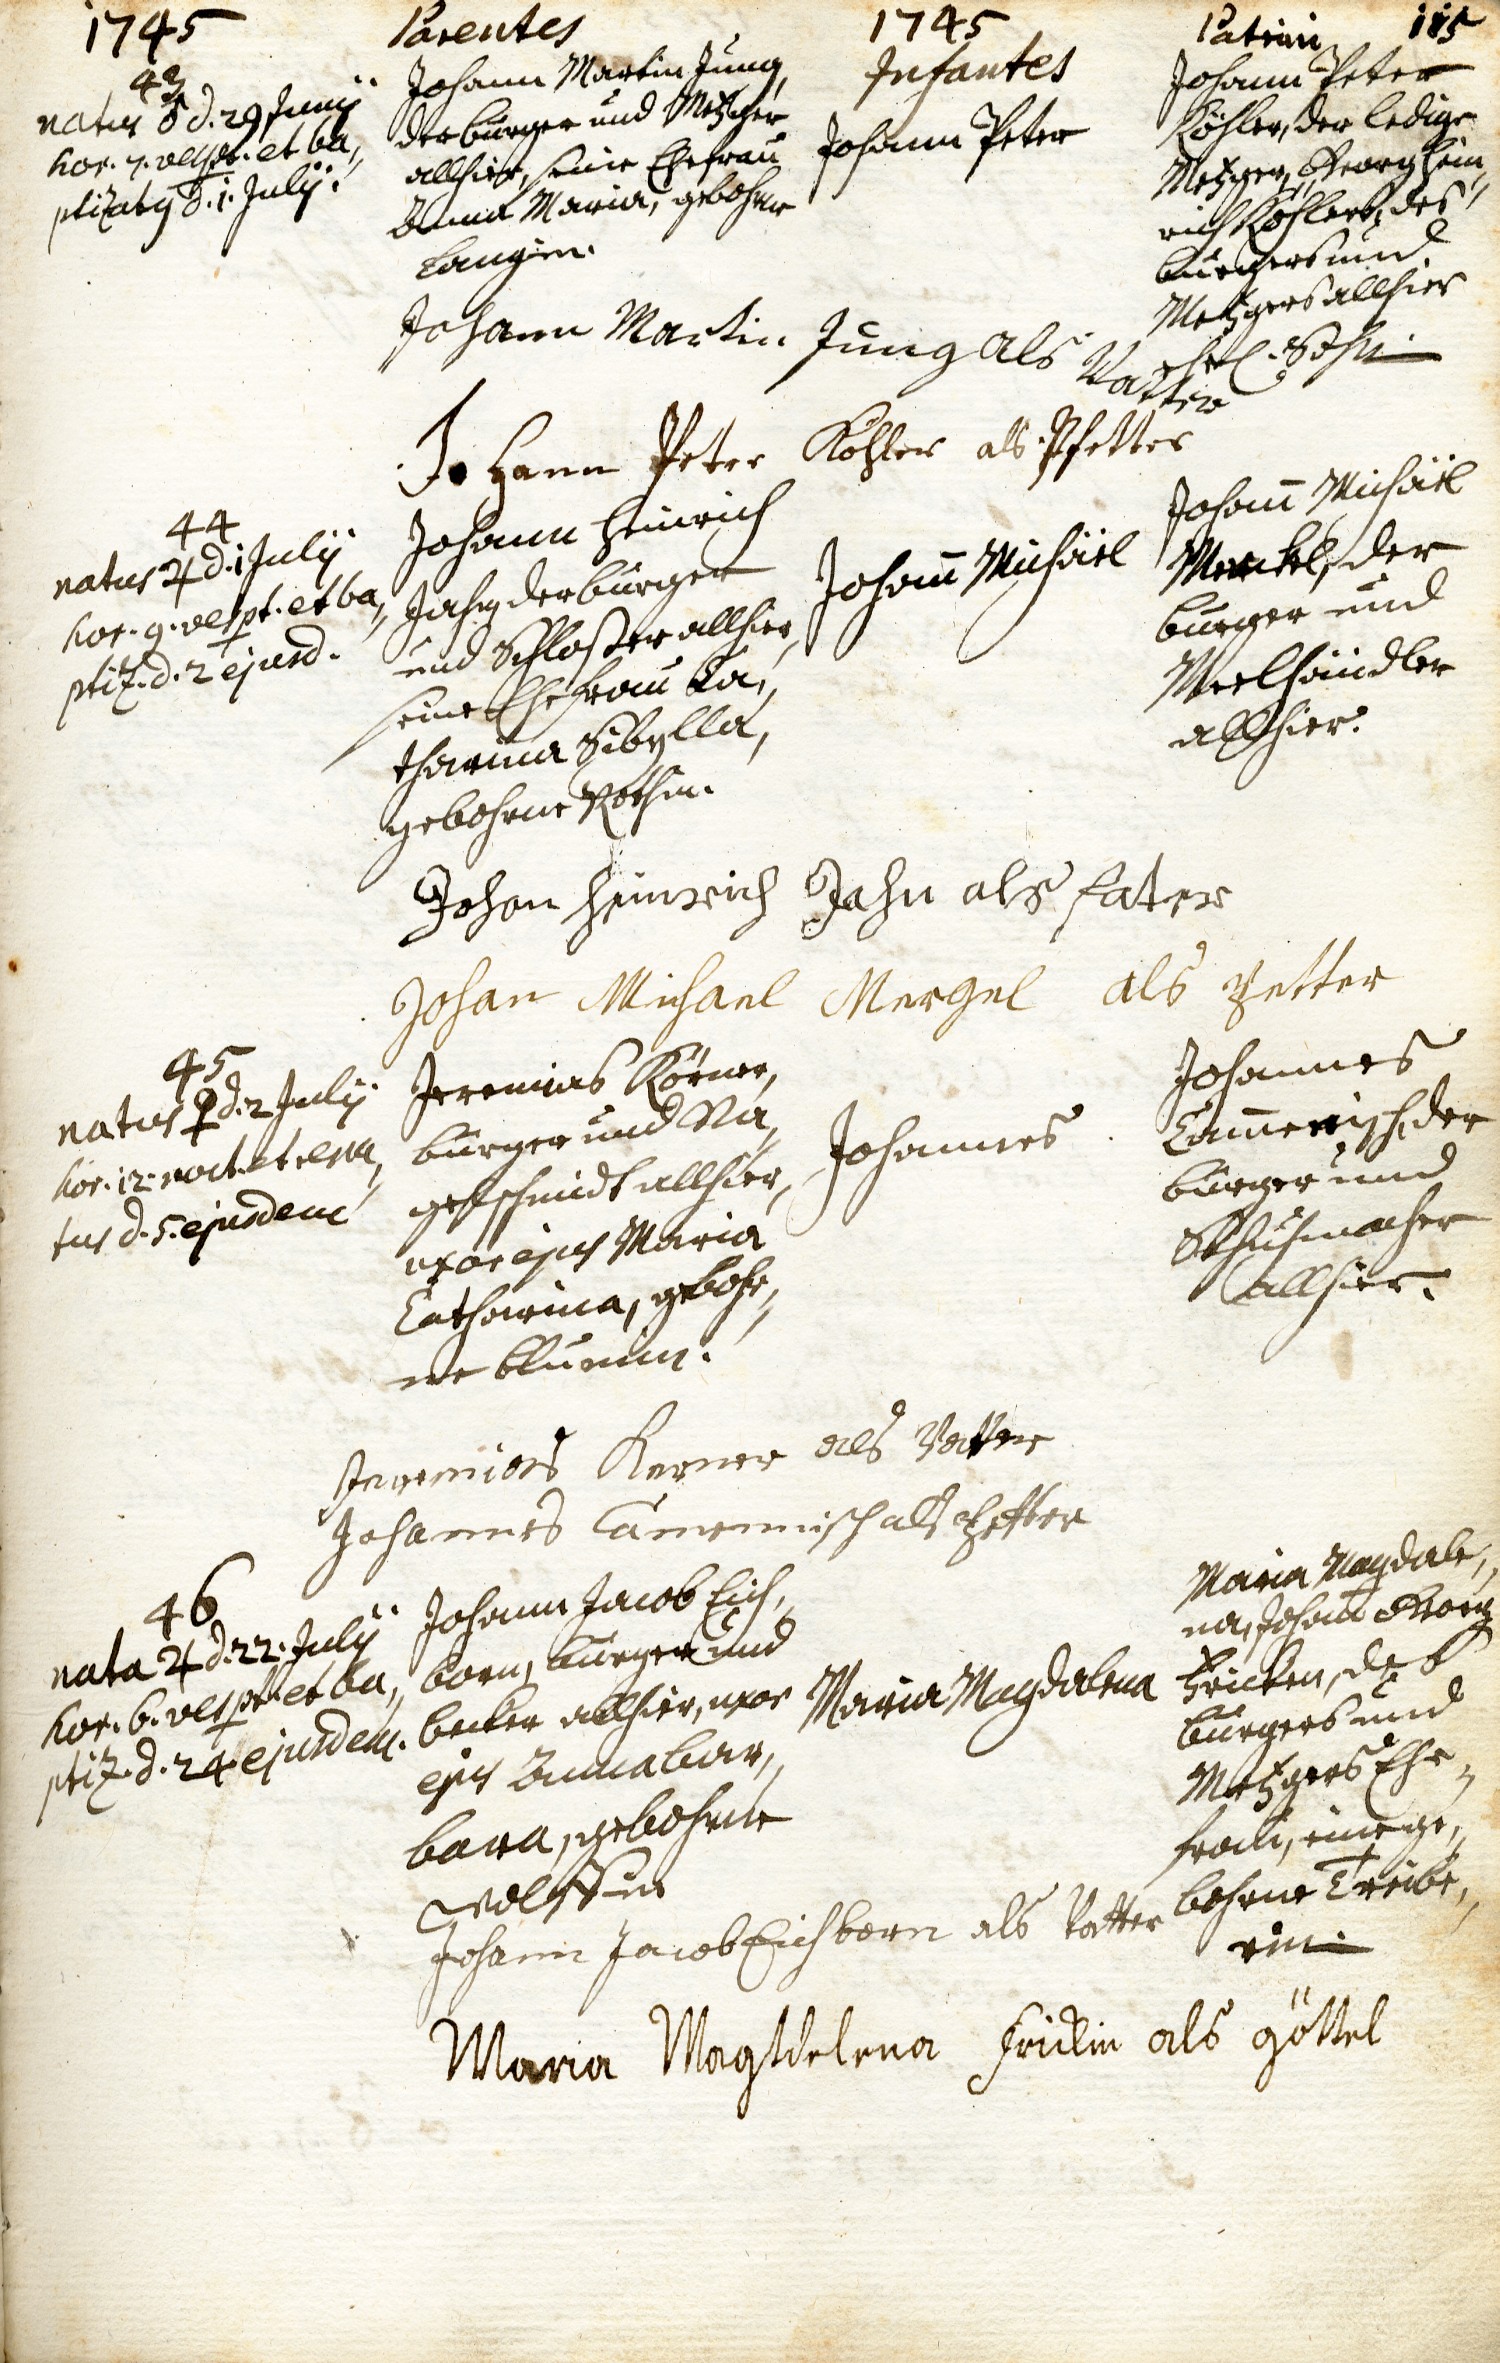 1745
Parentes
1745
Infantes
Patrini
115
43
natus ♂ d. 29 Junij
hor. 7. vespt. et ba,,
ptizaty d. 1. Julij.
Johann Martin Jung,
der burger und Metzger
allhier, seine Ehefrau
Anna Maria, gebohrne
Langin.
Johann Peter
Johann Peter
Köhler, der ledige
Metzger, Georg Hein,,
rich Köhlers, des
burgers und
Metzgers allhier
ehel. Sohn.
Johann Martin Jung als Vatter
Johann Peter Köhler als Pfetter
44
natus ♃ d. 1 Julij
hor. 9. vespt. et ba,,
ptiz. d. 2 ejusd.
Johann Heinrich
Jahn der burger
und Schlosser allhier,
seine Ehefrau Ca,,
tharina Sibylla,
gebohrne Rothin.
Joham̄ Michäel
Joham̄ Michäel
Merckel, der
burger und
Meelhändler
allhier.
Johan Heinrich Jahn als fater
Johan Michael Mergel als Petter
45
natus ♀ d. 2 Julij
hor. 12. noct. et rena,,
tus d. 5. ejusdem
Jeremias Körner,
burger und Na,,
gelschmidt allhier,
uxor ejus Maria
Catharina, gebohr,,
ne Blumin.
Johannes
Johannes
Cam̄erisch, der
burger und
Schuhmacher
allhier.
Jeremias Kerner als Vatter
Johannes als Petter
46
nata ♃ d. 22. Julij
hor. 6. vespt. et ba,,
ptiz. d. 24. ejusdem.
Johann Jacob Eich,,
born, burger und
becker allhier, uxor
ejus Anna bar,,
bara, gebohrne
Wolffin
Maria Magdalena
Maria Magdale,,
na, Joham̄ Georg
Fricken, des
burgers und
Metzgers Ehe,,
frau, eine ge,,
bohrne Treibe,,
rin.
Johann Jacob Eichborn als Vatter
Maria Magtdelena Frickin als göttel